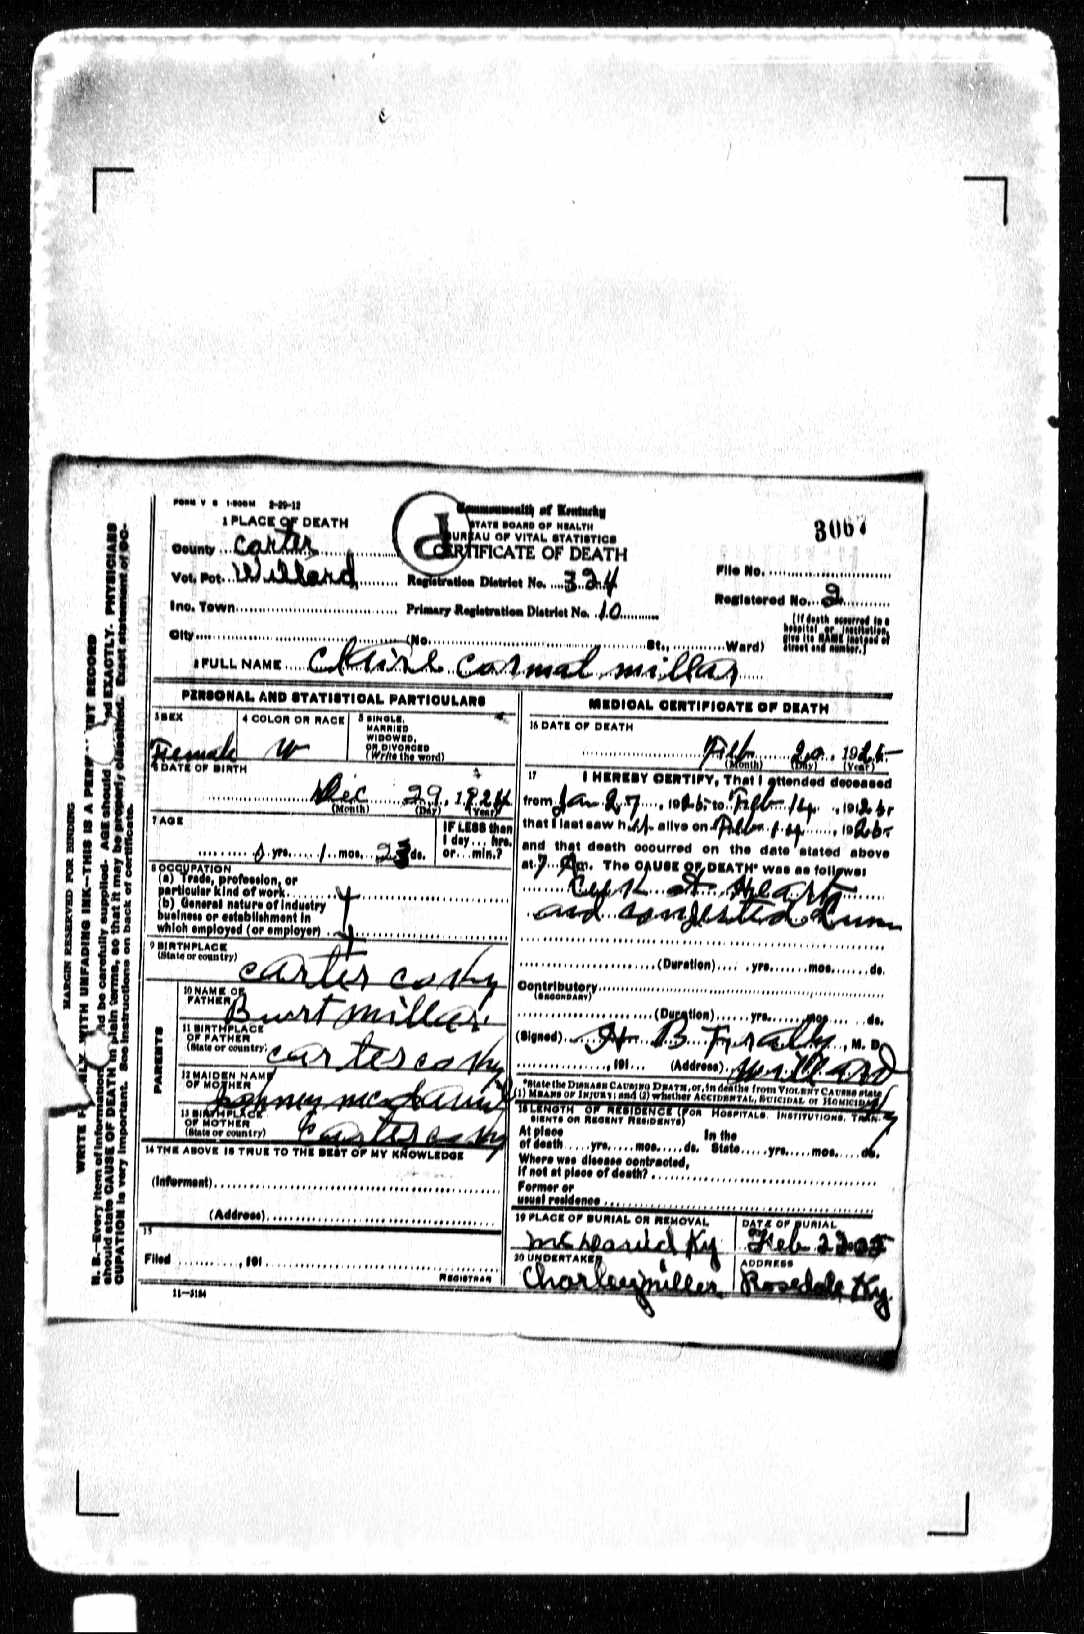 FORM V S 1-500M 2-29-12
Commonwealth of Kentucky
STATE BOARD OF HEALTH
BUREAU OF VITAL STATISTICS
CERTIFICATE OF DEATH
1 PLACE OF DEATH
County Carter
Vot. Pct. Willard Registration District No. 324 File No.
Inc. Town Primary Registration District No. 10 Registered No. 2
City (No. St., Ward)
(If death occurred in a
hospital or institution,
give its NAME instead of
street and number.)
2 FULL NAME cormal millar
PERSONAL AND STATISTICAL PARTICULARS
3 SEX 4 COLOR OR RACE 5 SINGLE,
MARRIED
WIDOWED,
OR DIVORCED
(Write the word)
Female W
6 DATE OF BIRTH
Dec 29, 1924
(Month) (Day) (Year)
7 AGE IF LESS than
1 day... hrs.
or...min.?
yrs. 1 mos. 23 ds.
8 OCCUPATION
(a) Trade, profession, or
particular kind of work
(b) General nature of industry
business or establishment in
which employed (or employer)
9 BIRTHPLACE
(State or country)
carter co Ky
PARENTS
10 NAME OF
FATHER Burt millar
11 BIRTHPLACE
OF FATHER
(State or country) carter co Ky
12 MAIDEN NAME
OF MOTHER
13 BIRTHPLACE
OF MOTHER
(State or country) Carter co Ky
14 THE ABOVE IS TRUE TO THE BEST OF MY KNOWLEDGE
(Informant)
(Address)
15
Filed , 191
REGISTRAR
11-3184
MEDICAL CERTIFICATE OF DEATH
16 DATE OF DEATH
Feb 20, 1925
(Month) (Day) (Year)
17 I HEREBY CERTIFY, That I attended deceased
from Jan 27, 1925 to Feb 14, 1925
that I last saw h alive on Feb 14, 1925
and that death occurred on the date stated above
at 7 m. The CAUSE OF DEATH* was as follows:
Heart
and congested
(Duration) yrs. mos. ds.
Contributory
(SECONDARY)
(Duration) yrs. mos. ds.
(Signed) H B Fraley, M. D.
, 191 (Address) Willard
Ky
*State the DISEASE CAUSING DEATH, or, in deaths from VIOLENT CAUSES state
(1) MEANS OF INJURY; and (2) whether ACCIDENTAL, SUICIDAL or HOMICIDAL
18 LENGTH OF RESIDENCE (FOR HOSPITALS, INSTITUTIONS, TRAN-
SIENTS OR RECENT RESIDENTS)
At place In the
of death yrs. mos. ds. State yrs. mos. ds.
Where was disease contracted,
if not at place of death?
Former or
usual residence
19 PLACE OF BURIAL OR REMOVAL DATE OF BURIAL
McDavid Ky Feb
20 UNDERTAKER ADDRESS
Charley miller Rosedale Ky.
MARGIN RESERVED FOR BINDING
WITH UNFADING INK—THIS IS A RECORD
N. B.—Every item of information be carefully supplied. AGE should EXACTLY. PHYSICIANS
should state CAUSE OF DEATH in plain terms, so that it may be properly classified. Exact statement of OC-
CUPATION is very important. See instructions on back of certificate.